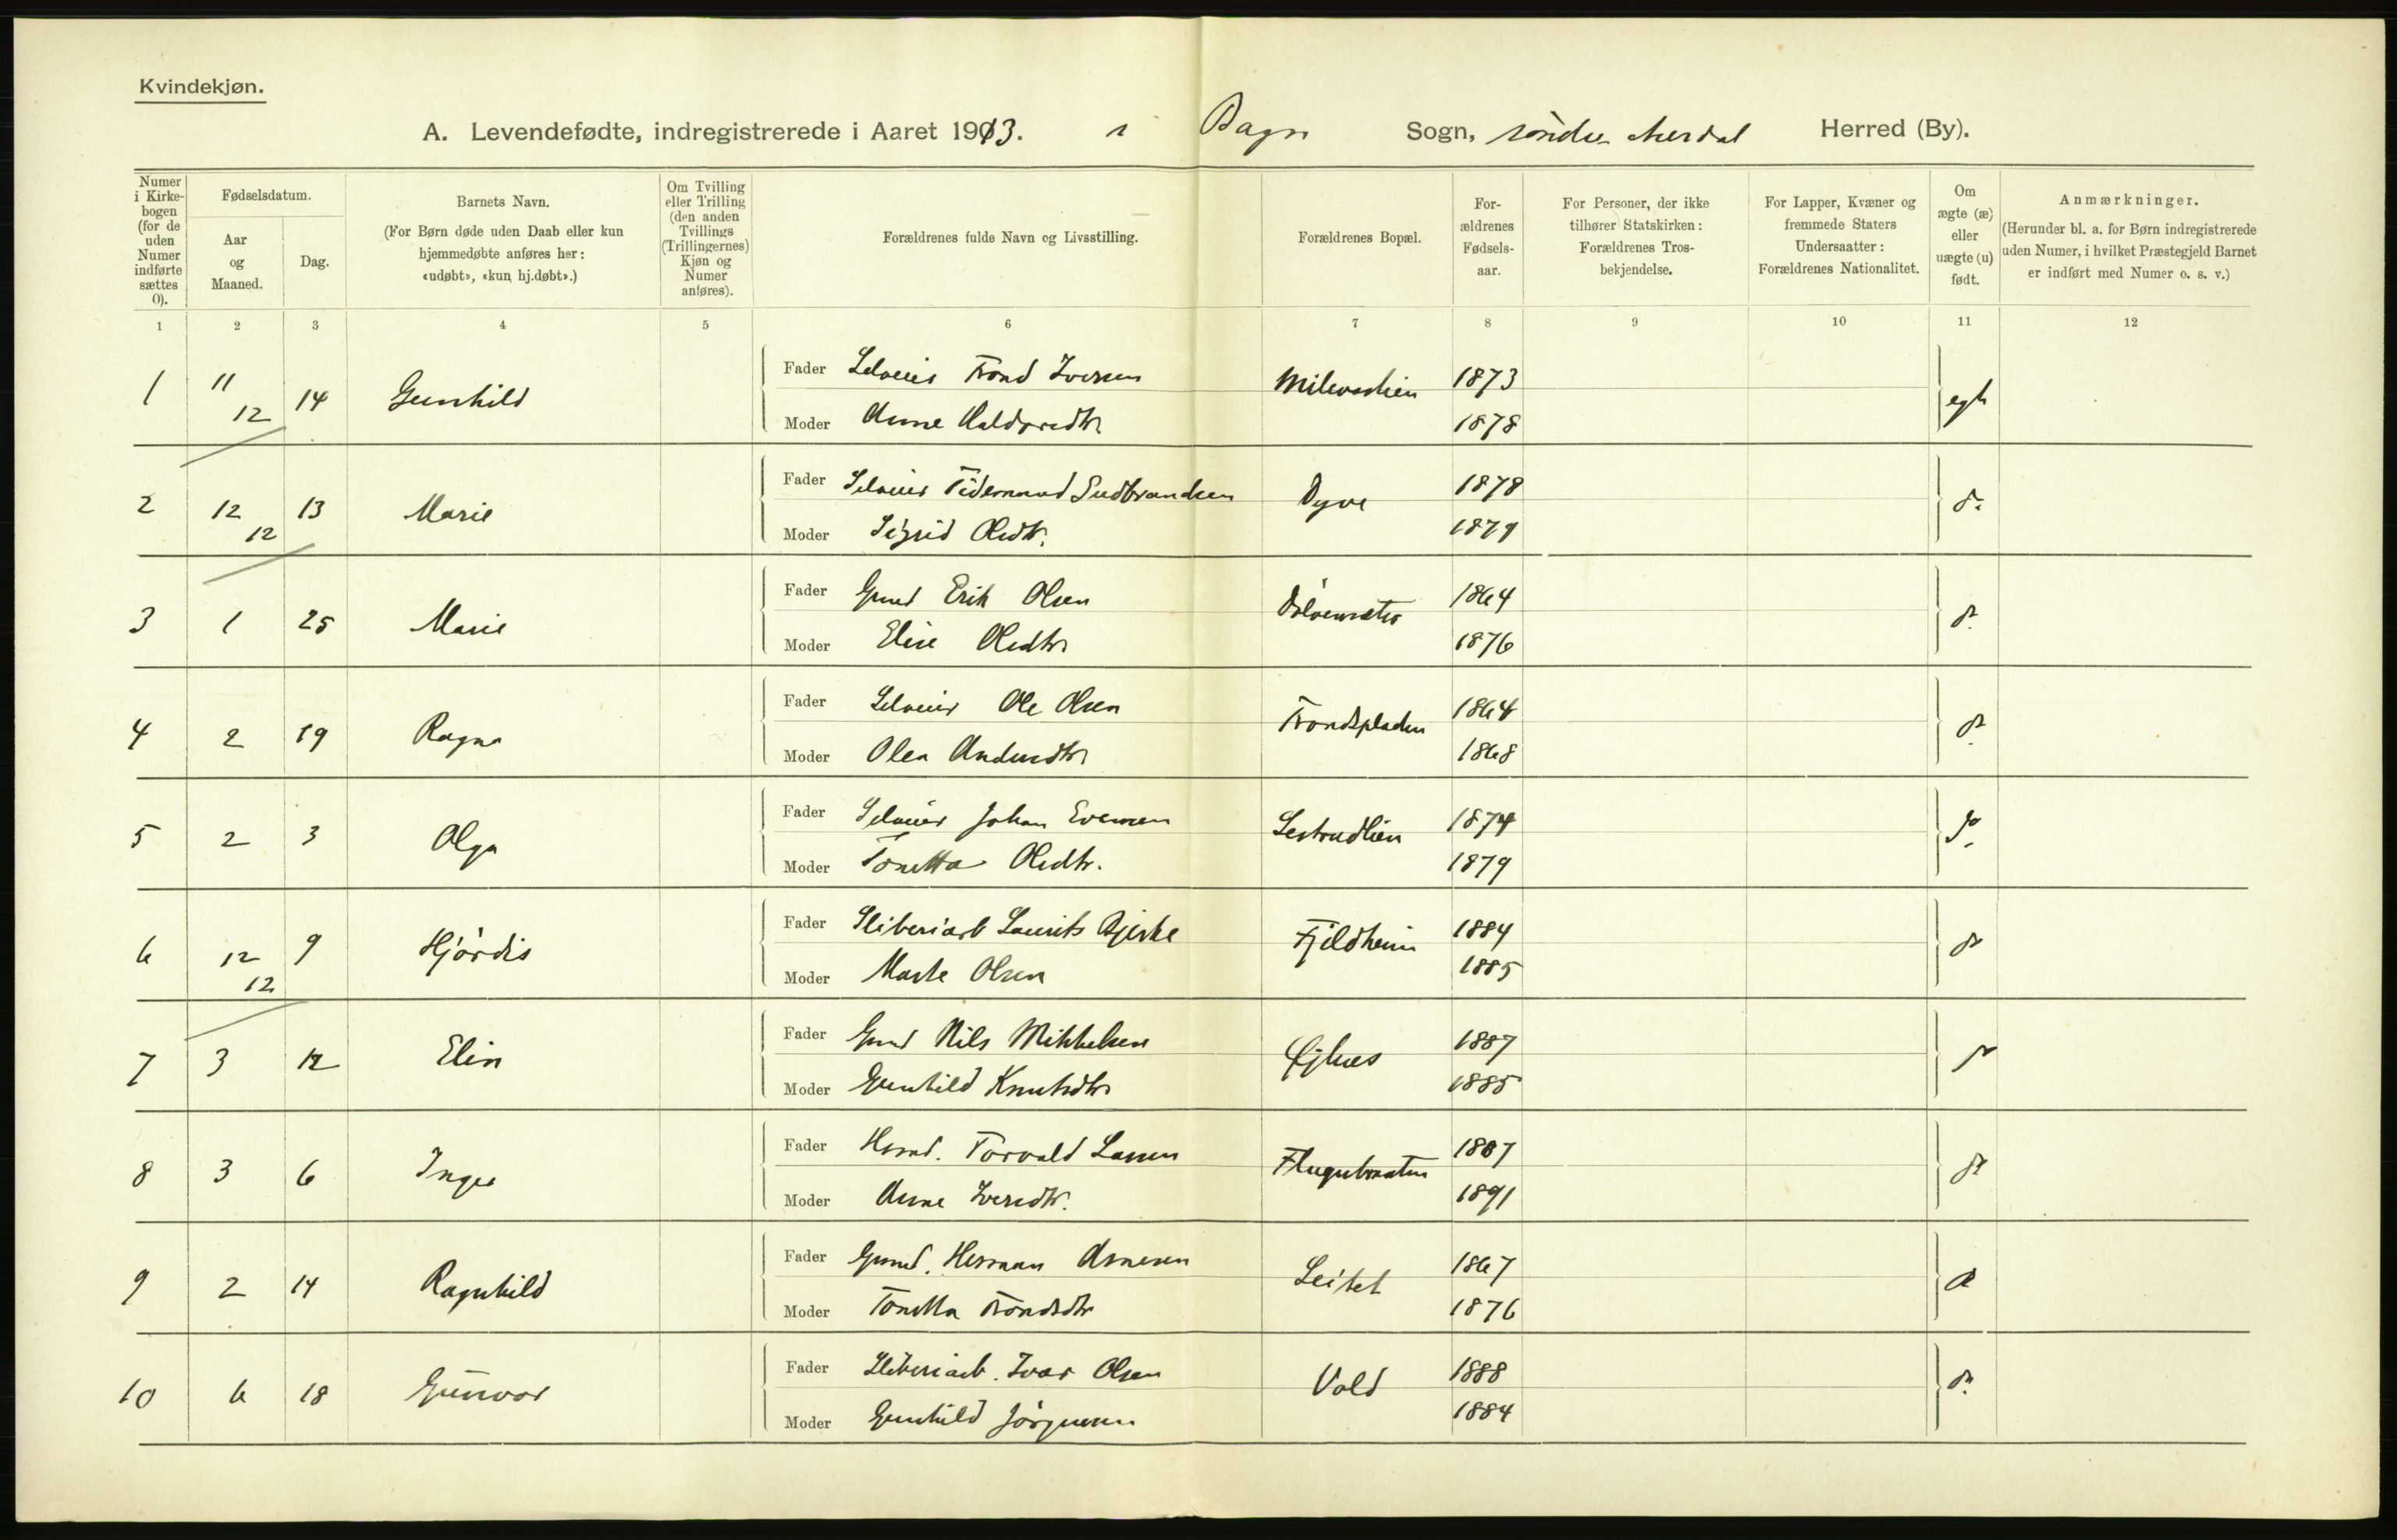 Kvindekjøn.
A. Levendefødte, indregistrerede i Aaret 1913. i Bagn Sogn, søndre Aurdal Herred (By).
Numer i Kirkebogen (for de uden Numer indførte sættes 0).
Fødselsdatum.
Aar og Maaned.
Dag.
Barnets Navn.
(For Børn døde uden Daab eller kun hjemmedøbte anføres her: «udøbt», «kun hj.døbt».)
Om Tvilling eller Trilling (den anden Tvillings (Trillingernes) Kjøn og Numer anføres).
Forældrenes fulde Navn og Livsstilling.
Forældrenes Bopæl.
Forældrenes Fødselsaar.
For Personer, der ikke tilhører Statskirken: Forældrenes Trosbekjendelse.
For Lapper, Kvæner og fremmede Staters Undersaatter: Forældrenes Nationalitet.
Om ægte (æ) eller uægte (u) født.
Anmærkninger.
(Herunder bl. a. for Børn indregistrerede uden Numer, i hvilket Præstegjeld Barnet er indført med Numer o. s. v.)
1 2 3 4 5 6 7 8 9 10 11 12
1 11/12 14 Gunhild Fader Selveier Trond Iversen 1873 egte
Moder Anne 1878
2 12/12 13 Marie Fader Selveier Tidemand Gudbrandsen Dyve 1878 do
Moder Sigrid Olsdtr. 1879
3 1 25 Marie Fader Gmd Erik Olsen 1864 do
Moder Elise Olsdtr 1876
4 2 19 Ragna Fader Selveier Ole Olsen Trondspladsen 1864 do
Moder Olea Andersdtr 1868
5 2 3 Olga Fader Selveier Johan Evensen 1874 do
Moder Tonetta Olsdtr. 1879
6 12/12 9 Hjørdis Fader Sliberiarb Laurits Bjerke Fjeldheim 1884 do
Moder Marte Olsen 1885
7 3 12 Elin Fader Gmd Nils Mikkelsen 1887 do
Moder Gunhild Knutsdtr 1885
8 3 6 Inger Fader Hsmd. Torvald Larsen 1887 do
Moder Anne Iversdtr. 1891
9 2 14 Ragnhild Fader Gmd. Herman Arnesen 1867 do
Moder Tonetta Trondsdtr 1876
10 6 18 Gunvor Fader Sliberiarb. Ivar Olsen Vold 1888 do
Moder Gunhild Jørgensen 1884